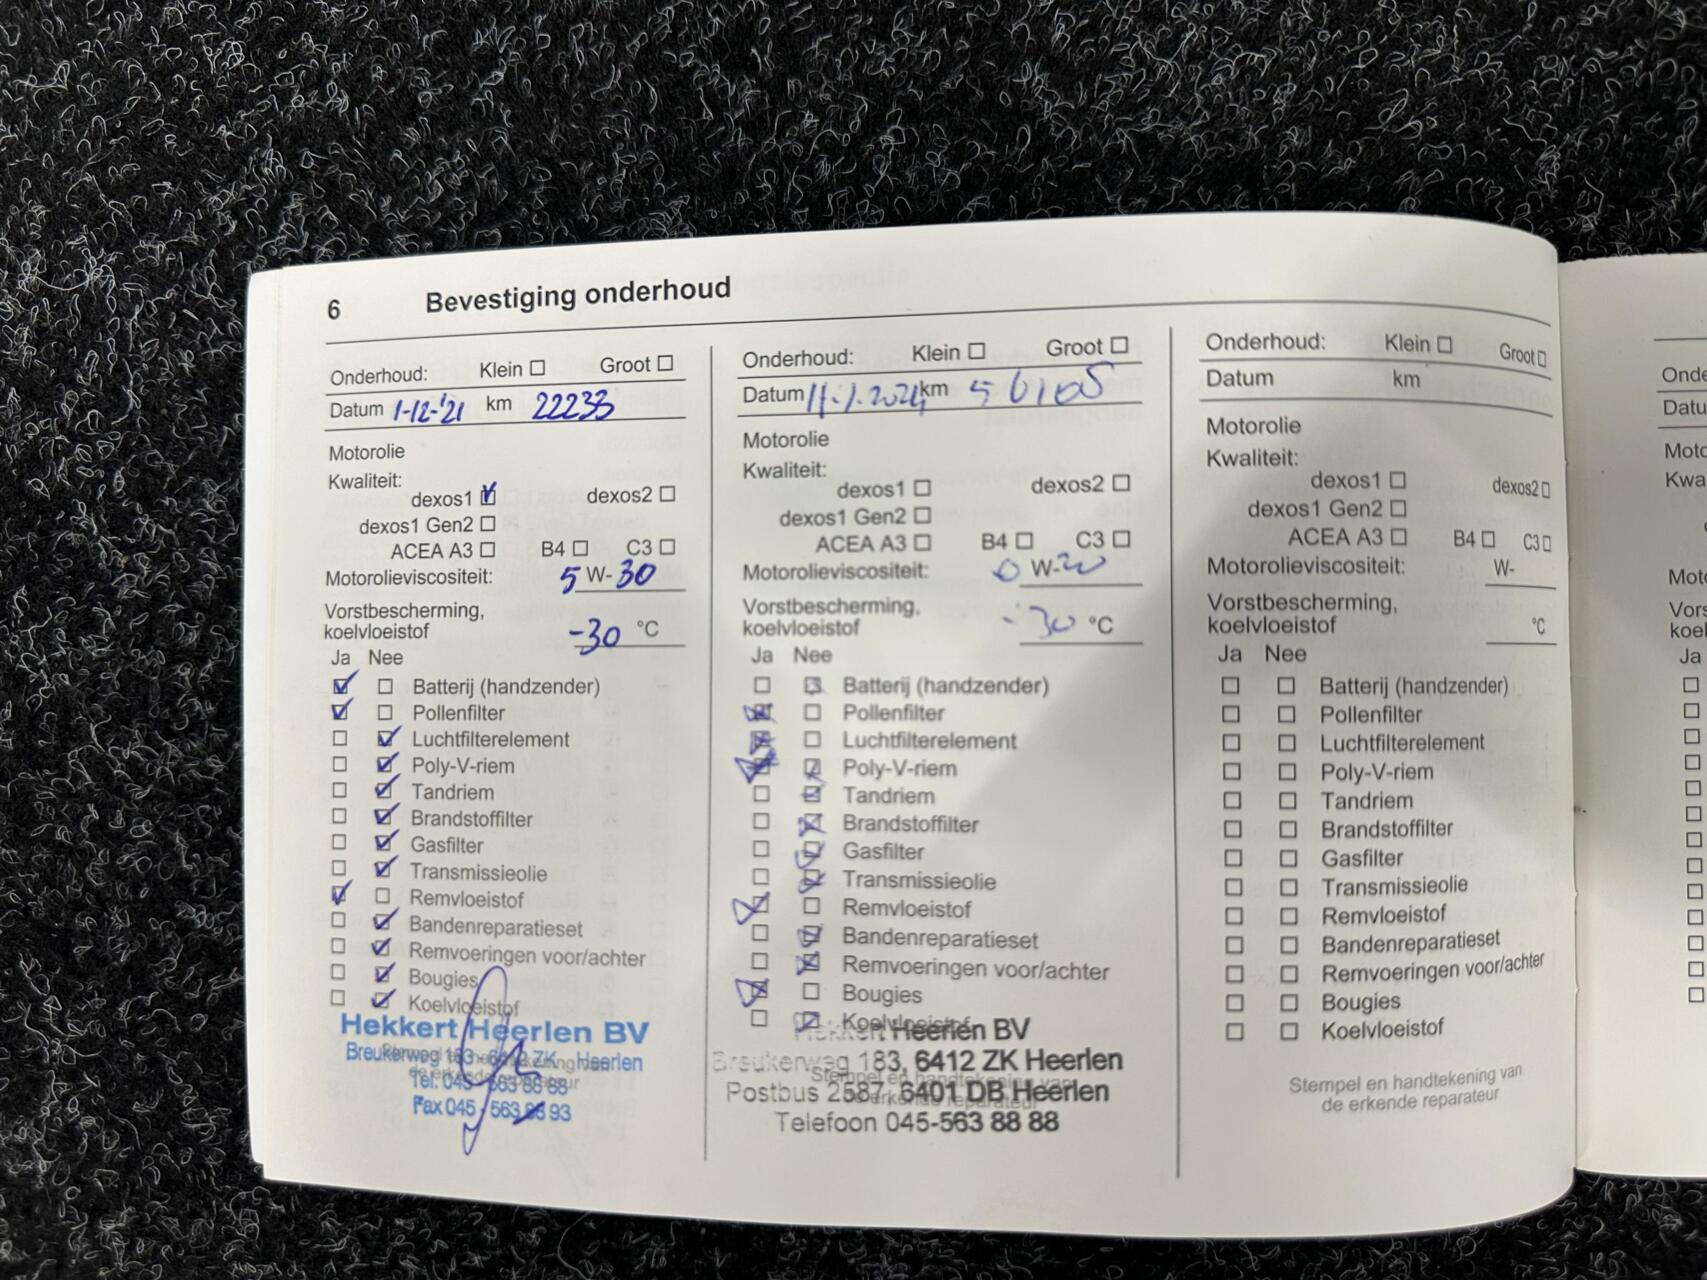 6 Bevestiging onderhoud
Onderhoud: Klein Groot
Datum 1-12-'21 km 22233
Motorolie
Kwaliteit:
dexos1 dexos2
dexos1 Gen2
ACEA A3 B4 C3
Motorolieviscositeit: 5 W-30
Vorstbescherming,
koelvloeistof -30 °C
Ja Nee
Batterij (handzender)
Pollenfilter
Luchtfilterelement
Poly-V-riem
Tandriem
Brandstoffilter
Gasfilter
Transmissieolie
Remvloeistof
Bandenreparatieset
Remvoeringen voor/achter
Bougies
Koelvloeistof
Hekkert Heerlen BV
Breukerweg 183 - 6412 ZK Heerlen
Tel. 045 - 563 88 88
Fax 045 - 563 93
Onderhoud: Klein Groot
Datum km
Motorolie
Kwaliteit:
dexos1 dexos2
dexos1 Gen2
ACEA A3 B4 C3
Motorolieviscositeit: 0 W-20
Vorstbescherming,
koelvloeistof -30 °C
Ja Nee
Batterij (handzender)
Pollenfilter
Luchtfilterelement
Poly-V-riem
Tandriem
Brandstoffilter
Gasfilter
Transmissieolie
Remvloeistof
Bandenreparatieset
Remvoeringen voor/achter
Bougies
Koelvloeistof
Hekkert Heerlen BV
Breukerweg 183, 6412 ZK Heerlen
Stempel en handtekening van
Postbus 2587, 6401 DB Heerlen
de erkende reparateur
Telefoon 045-563 88 88
Onderhoud: Klein Groot
Datum km
Motorolie
Kwaliteit:
dexos1 dexos2
dexos1 Gen2
ACEA A3 B4 C3
Motorolieviscositeit: W-
Vorstbescherming,
koelvloeistof °C
Ja Nee
Batterij (handzender)
Pollenfilter
Luchtfilterelement
Poly-V-riem
Tandriem
Brandstoffilter
Gasfilter
Transmissieolie
Remvloeistof
Bandenreparatieset
Remvoeringen voor/achter
Bougies
Koelvloeistof
Stempel en handtekening van
de erkende reparateur
Ja